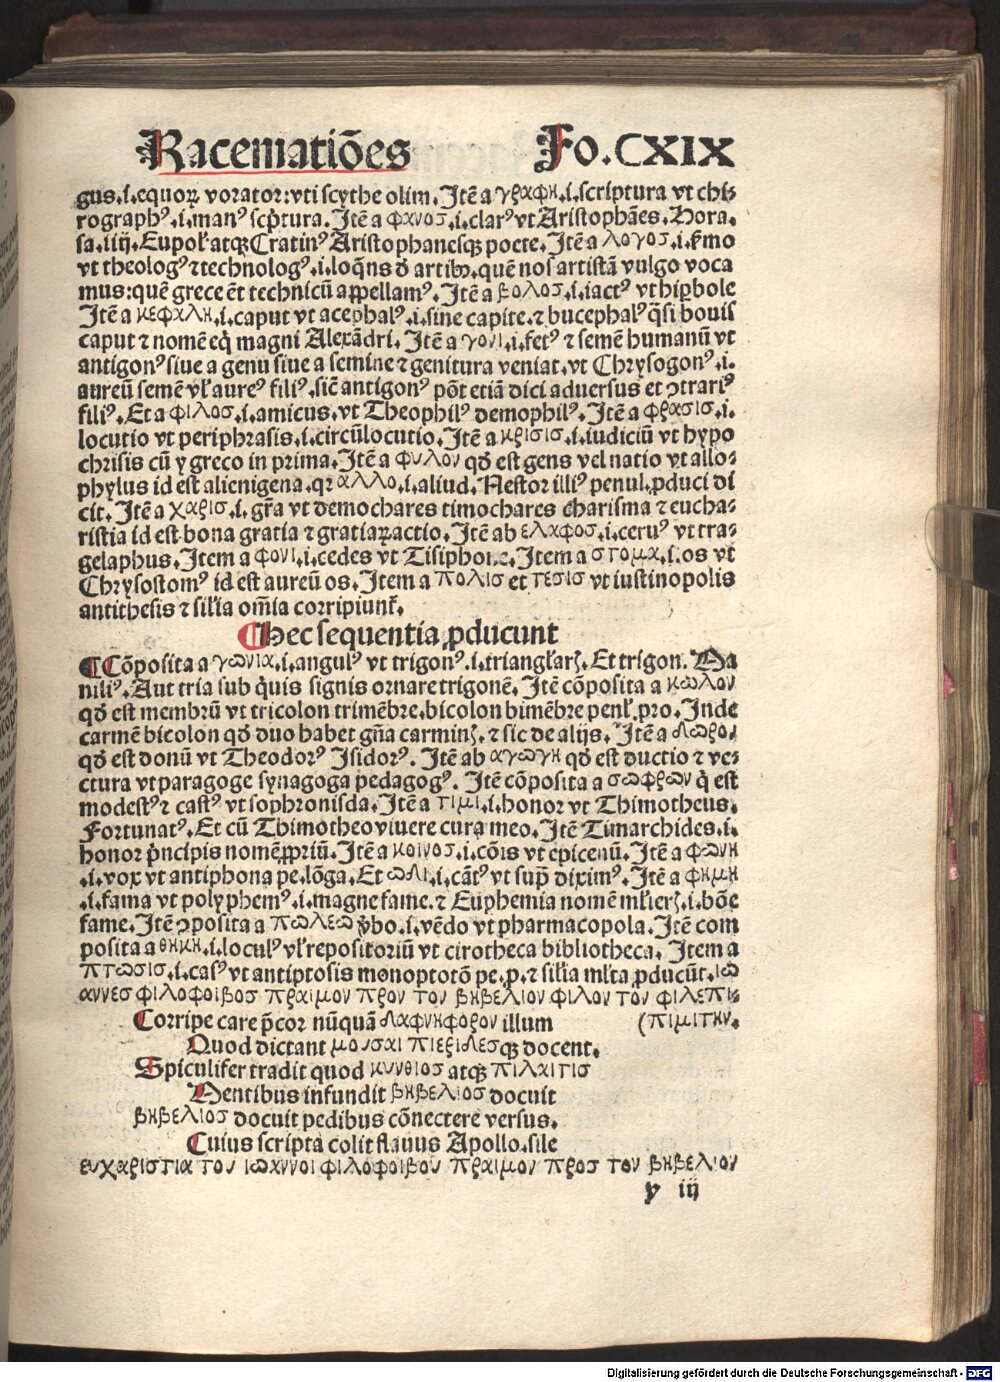 Racematiões Fo.CXIX
gus.i.equoꝝ vorator:vti scythe olim.Itē a γραφη.i.scriptura vt chi⸗
rographꝰ.i.manꝰ scp̄tura.Itē a φανοσ.i.clarꝰ vt Aristophāes.Hora.
sa.iiij.Eupoł atqꝫ Cratinꝰ Aristophanesqꝫ poete.Itē a λογοσ.i.ẜmo
vt theologꝰ ⁊ technologꝰ.i.loq̄ns đ artibꝰ.quē nos artistā vulgo voca
mus:quē grece ēt technicū appellamꝰ.Itē a βολοσ.i.iactꝰ vt hiꝑbole
Itē a κεφαλη.i.caput vt acephalꝰ.i.sine capite.⁊ bucephalꝰ q̄si bouis
caput ⁊ nomē eq̇ magni Alexādri.Itē a γονι.i.fetꝰ ⁊ semē humanū vt
antigonꝰ siue a genu siue a semine ⁊ genitura veniat.vt Chrysogonꝰ.i.
aureū semē vł aureꝰ filiꝰ.sic̄ antigonꝰ pōt etiā dici aduersus et ꝯtrariꝰ
filiꝰ.Et a φιλοσ.i.amicus.vt Theophilꝰ demophilꝰ.Itē a φρασισ.i.
locutio vt periphrasis.i.circūlocutio.Itē a κρισισ.i.iudiciū vt hypo
chrisis cū y greco in prima.Itē a φυλον qđ est gens vel natio vt allo⸗
phylus id est alienigena.qꝛ αλλο.i.aliud.Nestor illiꝰ penul.ꝓduci di
cit.Itē a χαρισ.i.gr̄a vt demochares timochares charisma ⁊ eucha⸗
ristia id est bona gratia ⁊ gratiaꝝ actio.Itē ab ελαφοσ.i.ceruꝰ vt tra⸗
gelaphus.Item a φονι.i.cedes vt Tisiphone.Item a στομα.i.os vt
Chrysostomꝰ id est aureū os.Item a πολισ et τεσισ vt iustinopolis
antithesis ⁊ sil'ia om̄ia corripiunt̄.
Hec sequentia ꝓducunt
Cōposita a γωνια.i.angulꝰ vt trigonꝰ.i.triangłarꝭ.Et trigon.Ma
niliꝰ.Aut tria sub q̇uis signis ornare trigonē.Itē cōposita a κωλον
qđ est membrū vt tricolon trimēbre.bicolon bimēbre penł.pro.Inde
carmē bicolon qđ duo habet gn̄a carminꝭ.⁊ sic de alijs.Itē a δωρον
qđ est donū vt Theodorꝰ Isidorꝰ.Itē ab αγωγη qđ est ductio ⁊ ve⸗
ctura vt paragoge synagoga pedagogꝰ.Itē cōposita a σωφρων q̇ est
modestꝰ ⁊ castꝰ vt sophronisda.Itē a τιμι.i.honor vt Thimotheus.
Fortunatꝰ.Et cū Thimotheo viuere cura meo.Itē Timarchides.i.
honor p̄ncipis nomē ꝓpriū.Itē a κοινοσ.i.cōis vt epicenū.Itē a φωνη
.i.vox vt antiphona pe.lōga.Et ωδι.i.cātꝰ vt sup̄ diximꝰ.Itē a φημη
.i.fama vt polyphemꝰ.i.magne fame.⁊ Euphemia nomē młierꝭ.i.bōe
fame.Itē ꝯposita a πωλεω v̄bo.i.vēdo vt pharmacopola.Itē com
posita a θηκη.i.loculꝰ vł repositoriū vt cirotheca bibliotheca.Item a
πτωσισ.i.casꝰ vt antiptosis monoptotō pe.p.⁊ sil'ia ml'ta ꝓducūt.ιω
αννεσ φιλοφοιβοσ πραιμον προν τον βηβελιον φιλον τον φιλεπι⸗
Corripe care p̄cor nūquā δαφνηφορον illum (πιμιτην.
Quod dictant μουσαι πιεριδεσqꝫ docent.
Spiculifer tradit quod κυνθιοσ atqꝫ πιλαιτισ
Mentibus infundit βηβελιοσ docuit
βηβελιοσ docuit pedibus cōnectere versus.
Cuius scripta colit flauus Apollo.sile
ευχαριστια του ιωαννοι φιλοφοιβου πραιμον προσ τον βηβελιον
y iij
Digitalisierung gefördert durch die Deutsche Forschungsgemeinschaft - DFG